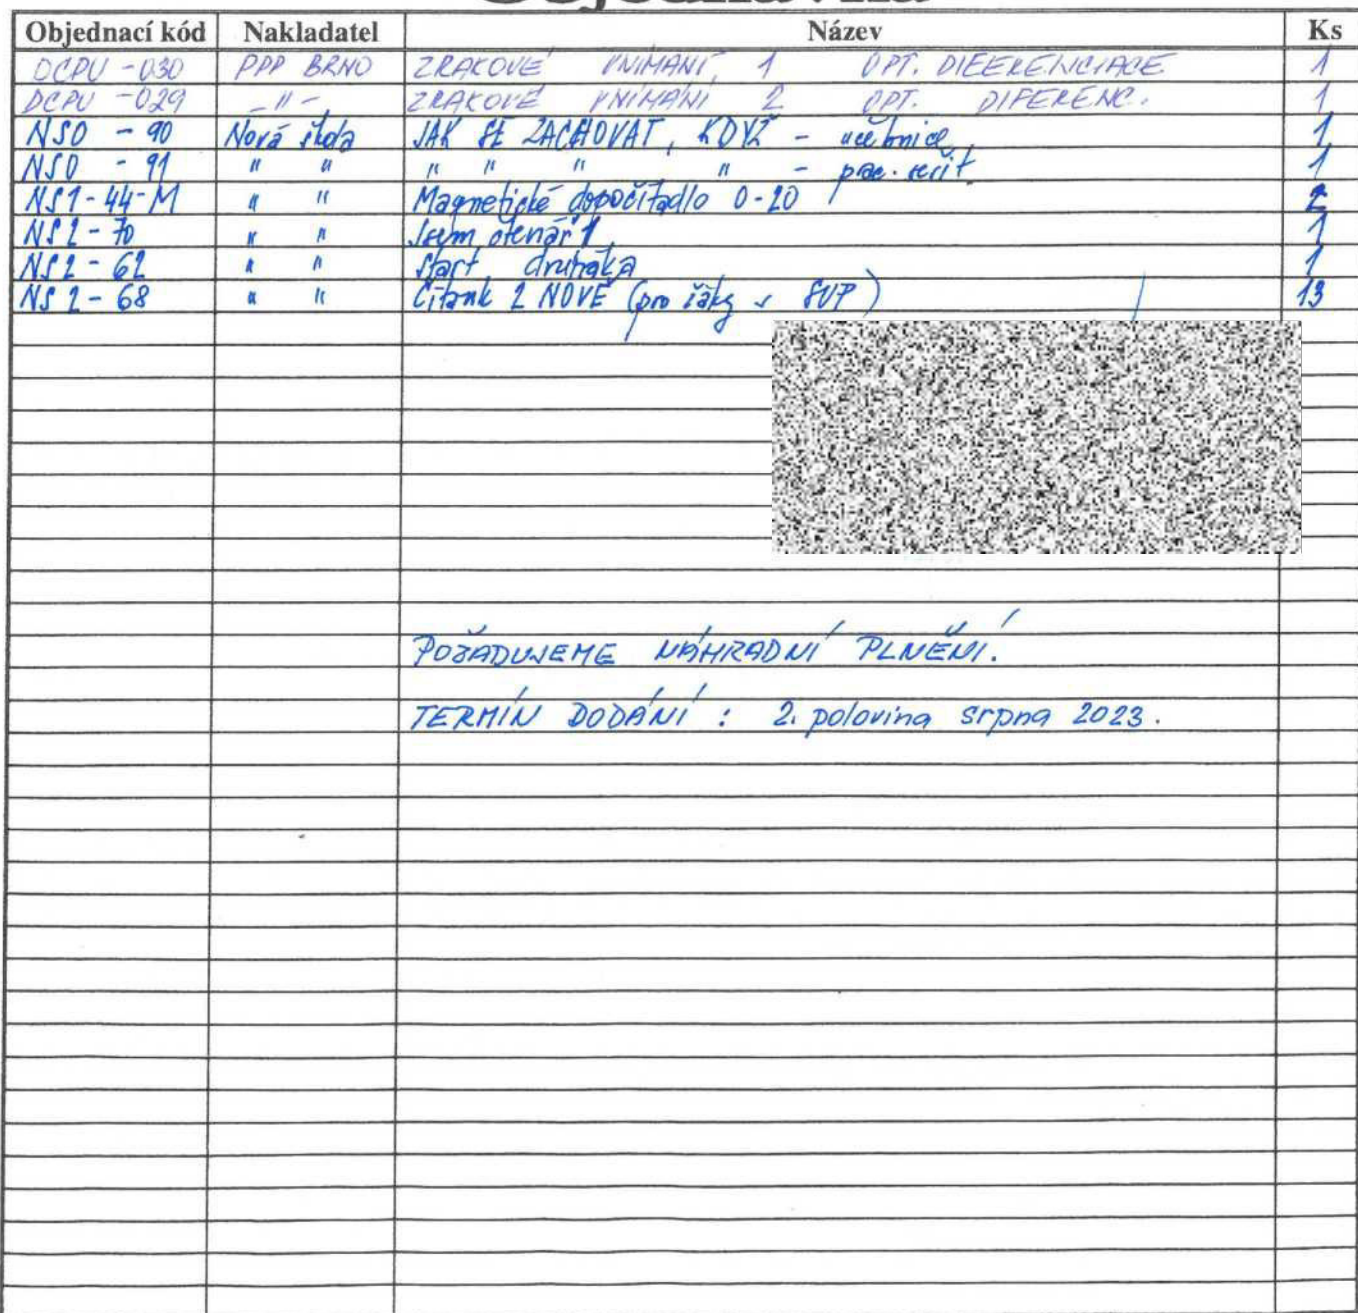 Objednávka
Objednací kód Nakladatel Název Ks
DCPU - 030 PPP BRNO ZRAKOVÉ VNÍMÁNÍ 1 OPT. DIFERENCIACE 1
DCPU - 029 - " - ZRAKOVÉ VNÍMÁNÍ 2 OPT. DIFERENC. 1
NS0 - 90 Nová škola JAK SE ZACHOVAT, KDYŽ - učebnice 1
NS0 - 91 " " " " " " - prac. sešit 1
NS1-44-M " " Magnetické dopočítadlo 0-20 2
NS2 - 70 " " Jsem čtenář 1 1
NS2 - 62 " " Start druháka 1
NS2 - 68 " " Čítank 2 NOVÉ (pro žáky s SVP) 13
POŽADUJEME NÁHRADNÍ PLNĚNÍ.
TERMÍN DODÁNÍ : 2. polovina srpna 2023.